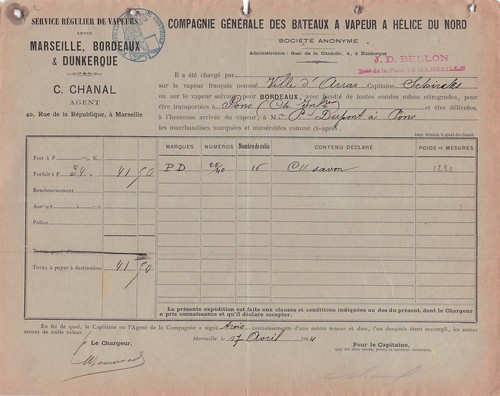 SERVICE RÉGULIER DE VAPEURS
ENTRE
MARSEILLE, BORDEAUX
& DUNKERQUE
C. CHANAL
AGENT
40, Rue de la République, à Marseille
COMPAGNIE GÉNÉRALE DES BATEAUX A VAPEUR A HÉLICE DU NORD
SOCIÉTÉ ANONYME
Administration: Quai de la Citadelle, à Dunkerque
J. D. BELLON
MARSEILLE
Il a été chargé par
sur le vapeur français nommé Ville d'Arras Capitaine
ou sur le vapeur suivant pour BORDEAUX, avec faculté de toutes escales même rétrogrades, pour
être transportées à Pons et être délivrées,
à l'heureuse arrivée du vapeur à M. P. Dupont à Pons
les marchandises marquées et numérotées comme ci-après:
MARQUES NUMÉROS Nombre de colis CONTENU DÉCLARÉ POIDS OU MESURES
P D 16 savon
Fret à F
Forfait à F 34. 41 50
Remboursement
Police
Total à payer à destination 41 50
La présente expédition est faite aux clauses et conditions indiquées au dos du présent, dont le Chargeur
a pris connaissance et qu'il déclare accepter.
En foi de quoi, le Capitaine ou l'Agent de la Compagnie a signé trois connaissements d'une même teneur et date, l'un desquels étant accompli, les autres
seront de nulle valeur.
Marseille, le 17 Avril
Le Chargeur,
Pour le Capitaine,